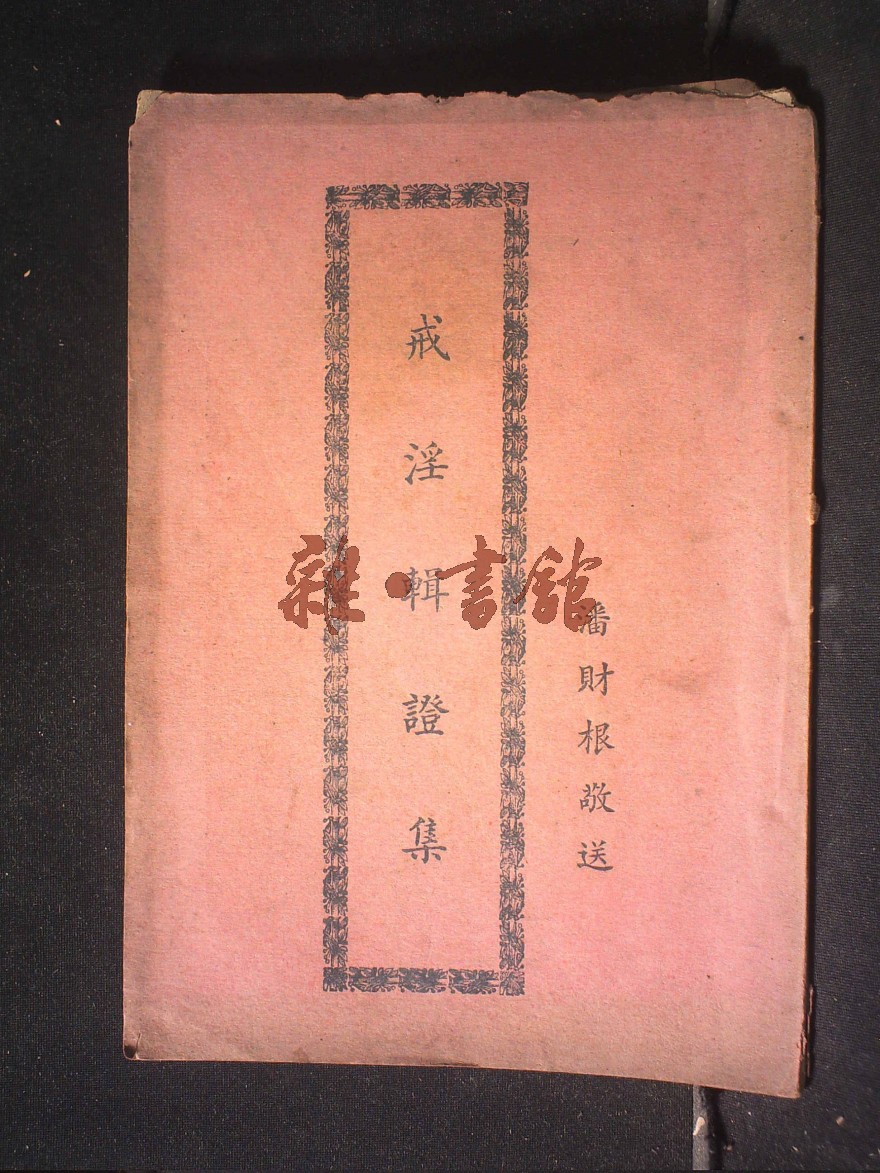 戒淫輯證集
潘財根敬送
雜·書館